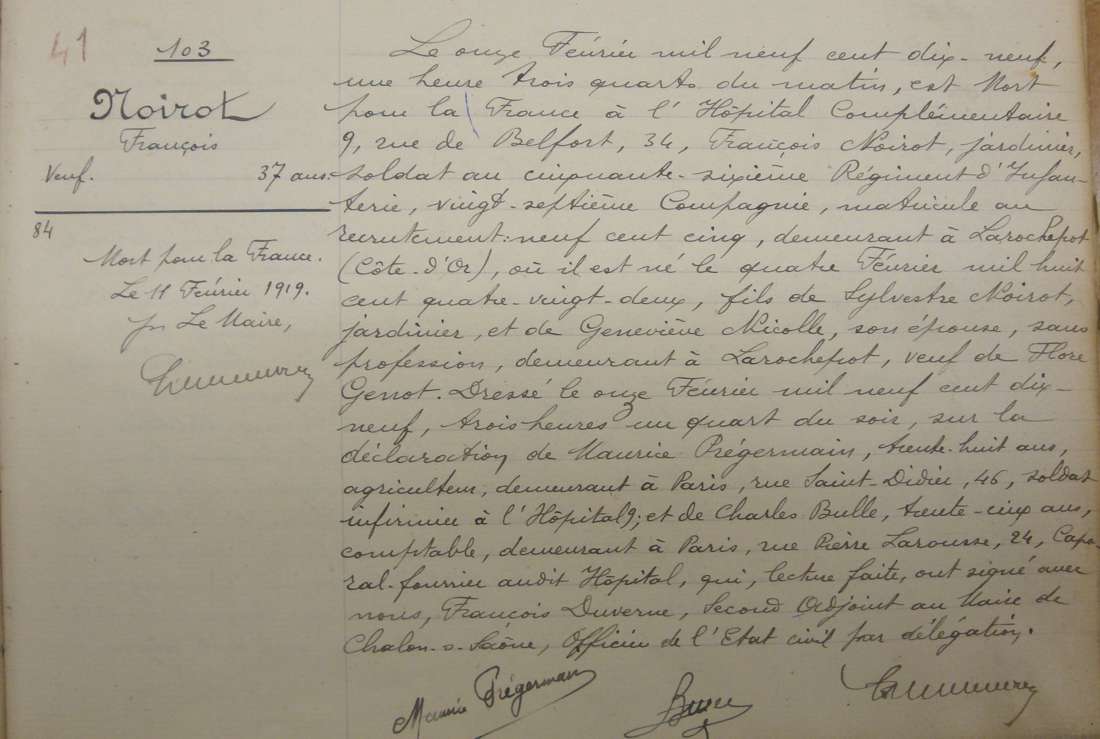 41
103
Noirot
François
Veuf. 37 ans.
84
Mort pour la France.
Le 11 Février 1919.
pr Le Maire,
Le onze Février mil neuf cent dix-neuf,
une heure trois quarts du matin, est Mort
pour la France à l'Hôpital Complémentaire
9, rue de Belfort, 34, François Noirot, jardinier,
soldat au cinquante-sixième Régiment d'Infan-
terie, vingt-septième Compagnie, matricule au
recrutement: neuf cent cinq, demeurant à Larochepot
(Côte-d'Or), où il est né le quatre Février mil huit
cent quatre-vingt-deux, fils de Sylvestre Noirot,
jardinier, et de Geneviève Nicolle, son épouse, sans
profession, demeurant à Larochepot, veuf de Flore
Genot. Dressé le onze Février mil neuf cent dix-
neuf, trois heures un quart du soir, sur la
déclaration de Maurice Prégermain, trente-huit ans,
agriculteur, demeurant à Paris, rue Saint-Didier, 46, soldat
infirmier à l'Hôpital 9; et de Charles Bulle, trente-cinq ans,
comptable, demeurant à Paris, rue Pierre Larousse, 24, Capo-
ral-fourrier audit Hôpital, qui, lecture faite, ont signé avec
nous, François Duverne, Second Adjoint au Maire de
Chalon-s-Saône, Officier de l'Etat civil par délégation.
Maurice Prégermain